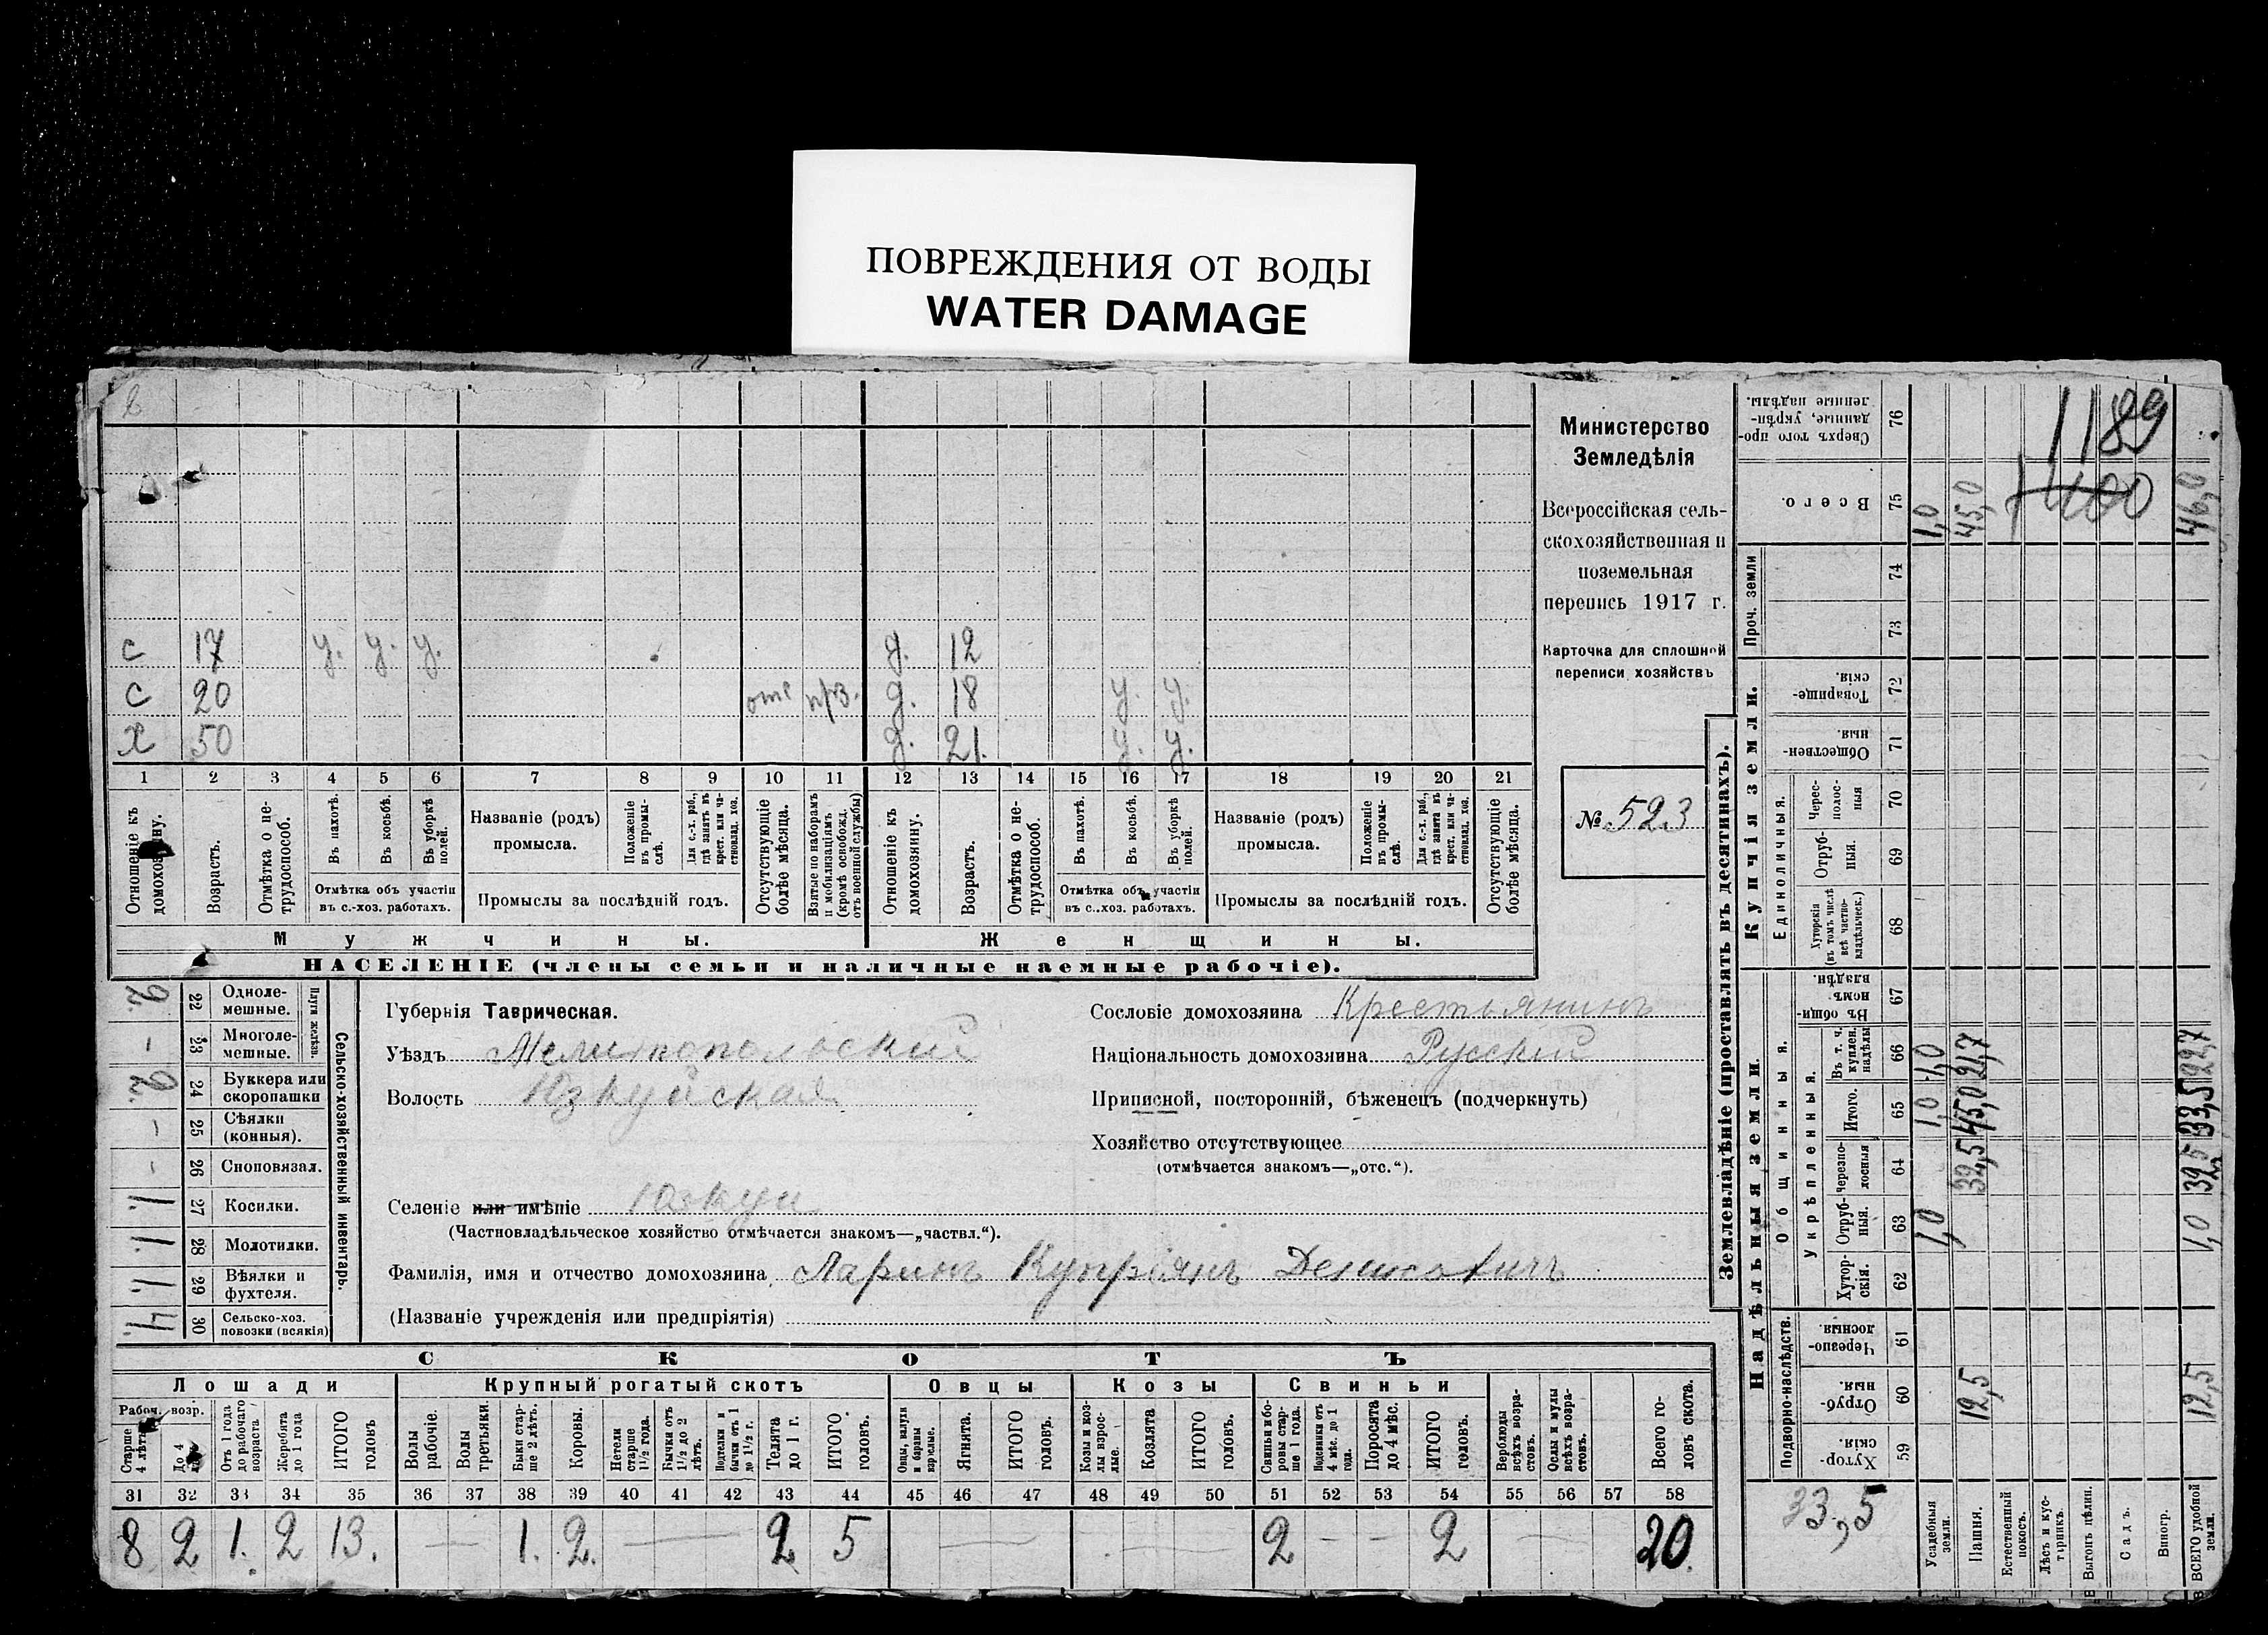 ПОВРЕЖДЕНИЯ ОТ ВОДЫ
WATER DAMAGE
с 17 у. у. у. д. 12
с 20 отс д. 18 у. у.
х 50 д. 21. у. у.
1 2 3 4 5 6 7 8 9 10 11 12 13 14 15 16 17 18 19 20 21
Отношеніе къ домохозяину.
Возрастъ.
Отмѣтка о не-трудоспособ.
Въ пахотѣ.
Въ косьбѣ.
Въ уборкѣ полей.
Отмѣтка объ участіи въ с.-хоз. работахъ.
Названіе (родъ) промысла.
Положеніе въ промы-слѣ.
Для с.-х. раб., гдѣ занятъ въ крест. или ча-стновлад. хоз.
Промыслы за послѣдній годъ.
Отсутствующіе болѣе мѣсяца.
Взятые по наборамъ и мобилизаціямъ (кромѣ освобожд. отъ военной службы)
Отношеніе къ домохозяину.
Возрастъ.
Отмѣтка о не-трудоспособ.
Въ пахотѣ.
Въ косьбѣ.
Въ уборкѣ полей.
Отмѣтка объ участіи въ с.-хоз. работахъ.
Названіе (родъ) промысла.
Положеніе въ промы-слѣ.
Для с.-х. раб., гдѣ занята въ крест. или ча-стновлад. хоз.
Промыслы за послѣдній годъ.
Отсутствующіе болѣе мѣсяца.
Мужчины.
Женщины.
НАСЕЛЕНІЕ (члены семьи и наличные наемные рабочіе).
Министерство
Земледѣлія
Всероссійская сель-
скохозяйственная и
поземельная
перепись 1917 г.
Карточка для сплошной
переписи хозяйствъ
№ 523
Сельско-хозяйственный инвентарь.
Плуги желѣзн.
2. 22 Одноле-мешные.
– 23 Многоле-мешные.
2. 24 Буккера или скоропашки
– 25 Сѣялки (конныя).
– 26 Сноповязал.
1. 27 Косилки.
1. 28 Молотилки.
1. 29 Вѣялки и фухтеля.
4. 30 Сельско-хоз. повозки (всякія)
Губернія Таврическая.
Уѣздъ Мелитопольскій
Волость Юзкуйская
Селеніе или имѣніе Юзкуи
(Частновладѣльческое хозяйство отмѣчается знакомъ—„частвл.“).
Фамилія, имя и отчество домохозяина Ларинъ Купріянъ Денисовичъ
(Названіе учрежденія или предпріятія)
Сословіе домохозяина Крестьянинъ
Національность домохозяина Русскій
Приписной, посторонній, бѣженецъ (подчеркнуть)
Хозяйство отсутствующее
(отмѣчается знакомъ—„отс.“).
СКОТЪ
Лошади Крупный рогатый скотъ Овцы Козы Свиньи
Рабоч. возр.
Старше 4 лѣтъ
До 4
Отъ 1 года до рабочаго возраста
Жеребята до 1 года
ИТОГО головъ
Волы рабочіе.
Волы третьяки.
Быки стар-ше 2 лѣтъ.
Коровы.
Нетели старше 1½ года.
Бычки отъ 1½ до 2 лѣтъ.
Подтелки и бычки отъ 1 до 1½ г.
Телята до 1 г.
ИТОГО головъ.
Овцы, валухи и бараны взрослые.
Ягнята.
ИТОГО головъ.
Козы и коз-лы взрос-лые.
Козлята
ИТОГО головъ.
Свиньи и бо-ровы стар-ше 1 года.
Подсвинки отъ 4 мѣс. до 1 года.
Поросята до 4 мѣс.
ИТОГО головъ.
Верблюды всѣхъ возра-стовъ.
Ослы и мулы всѣхъ возра-стовъ.
Всего го-ловъ скота.
31 32 33 34 35 36 37 38 39 40 41 42 43 44 45 46 47 48 49 50 51 52 53 54 55 56 57 58
8 2 1. 2 13. — 1. 2. — 2 5 — — 2 – – 2 — 20.
Землевладѣніе (проставлять въ десятинахъ).
Надѣльныя земли.
Купчія земли.
Проч. земли
Подворно-наслѣдств.
Общинныя.
Укрѣпленныя.
Единоличныя.
Сверхъ того про-данные, укрѣп-ленные надѣлы. 76
Всего. 75
74
73
Товарище-скія. 72
Обществен-ныя. 71
Черес-полос-ныя 70
Отруб-ныя. 69
Хуторскія (въ томъ числѣ всѣ частно-владѣльческ.) 68
Въ общи-номъ владѣн. 67
Въ т. ч. куплен. надѣлы 66
Итого. 65
Черезпо-лосныя 64
Отруб-ныя. 63
Хутор-скія. 62
Черезпо-лосныя 61
Отруб-ныя. 60
Хутор-скія. 59
1189
1400
33,5
Усадебныя земли. 1,0 1,0 1,0 1,0
Пашня. 12,5 32,5 45,0 21,7 45,0
Естественный покосъ.
Лѣсъ и кус-тарникъ.
Выгонъ цѣлин.
Садъ.
Виногр.
ВСЕГО удобной земли. 12,5 1,0 32,5 33,5 22,7 46,0